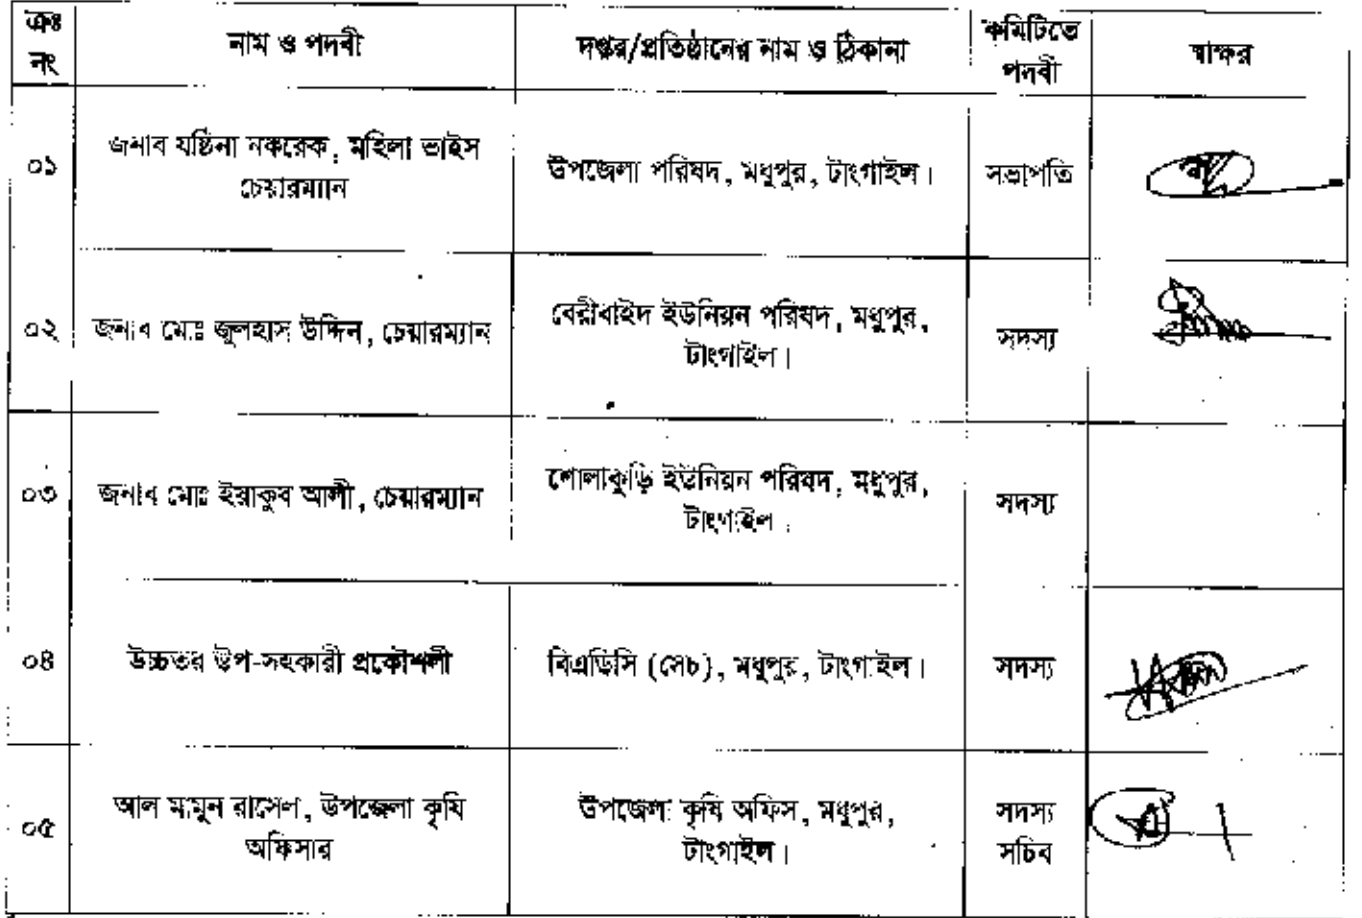 ক্রঃ নং নাম ও পদবী দপ্তর/প্রতিষ্ঠানের নাম ও ঠিকানা কমিটিতে পদবী স্বাক্ষর
০১ জনাব যষ্ঠিনা নকরেক, মহিলা ভাইস চেয়ারম্যান উপজেলা পরিষদ, মধুপুর, টাংগাইল। সভাপতি
০২ জনাব মোঃ জুলহাস উদ্দিন, চেয়ারম্যান বেরীবাইদ ইউনিয়ন পরিষদ, মধুপুর, টাংগাইল। সদস্য
০৩ জনাব মোঃ ইয়াকুব আলী, চেয়ারম্যান শোলাকুড়ি ইউনিয়ন পরিষদ, মধুপুর, টাংগাইল। সদস্য
০৪ উচ্চতর উপ-সহকারী প্রকৌশলী বিএডিসি (সেচ), মধুপুর, টাংগাইল। সদস্য
০৫ আল মামুন রাসেল, উপজেলা কৃষি অফিসার উপজেলা কৃষি অফিস, মধুপুর, টাংগাইল। সদস্য সচিব